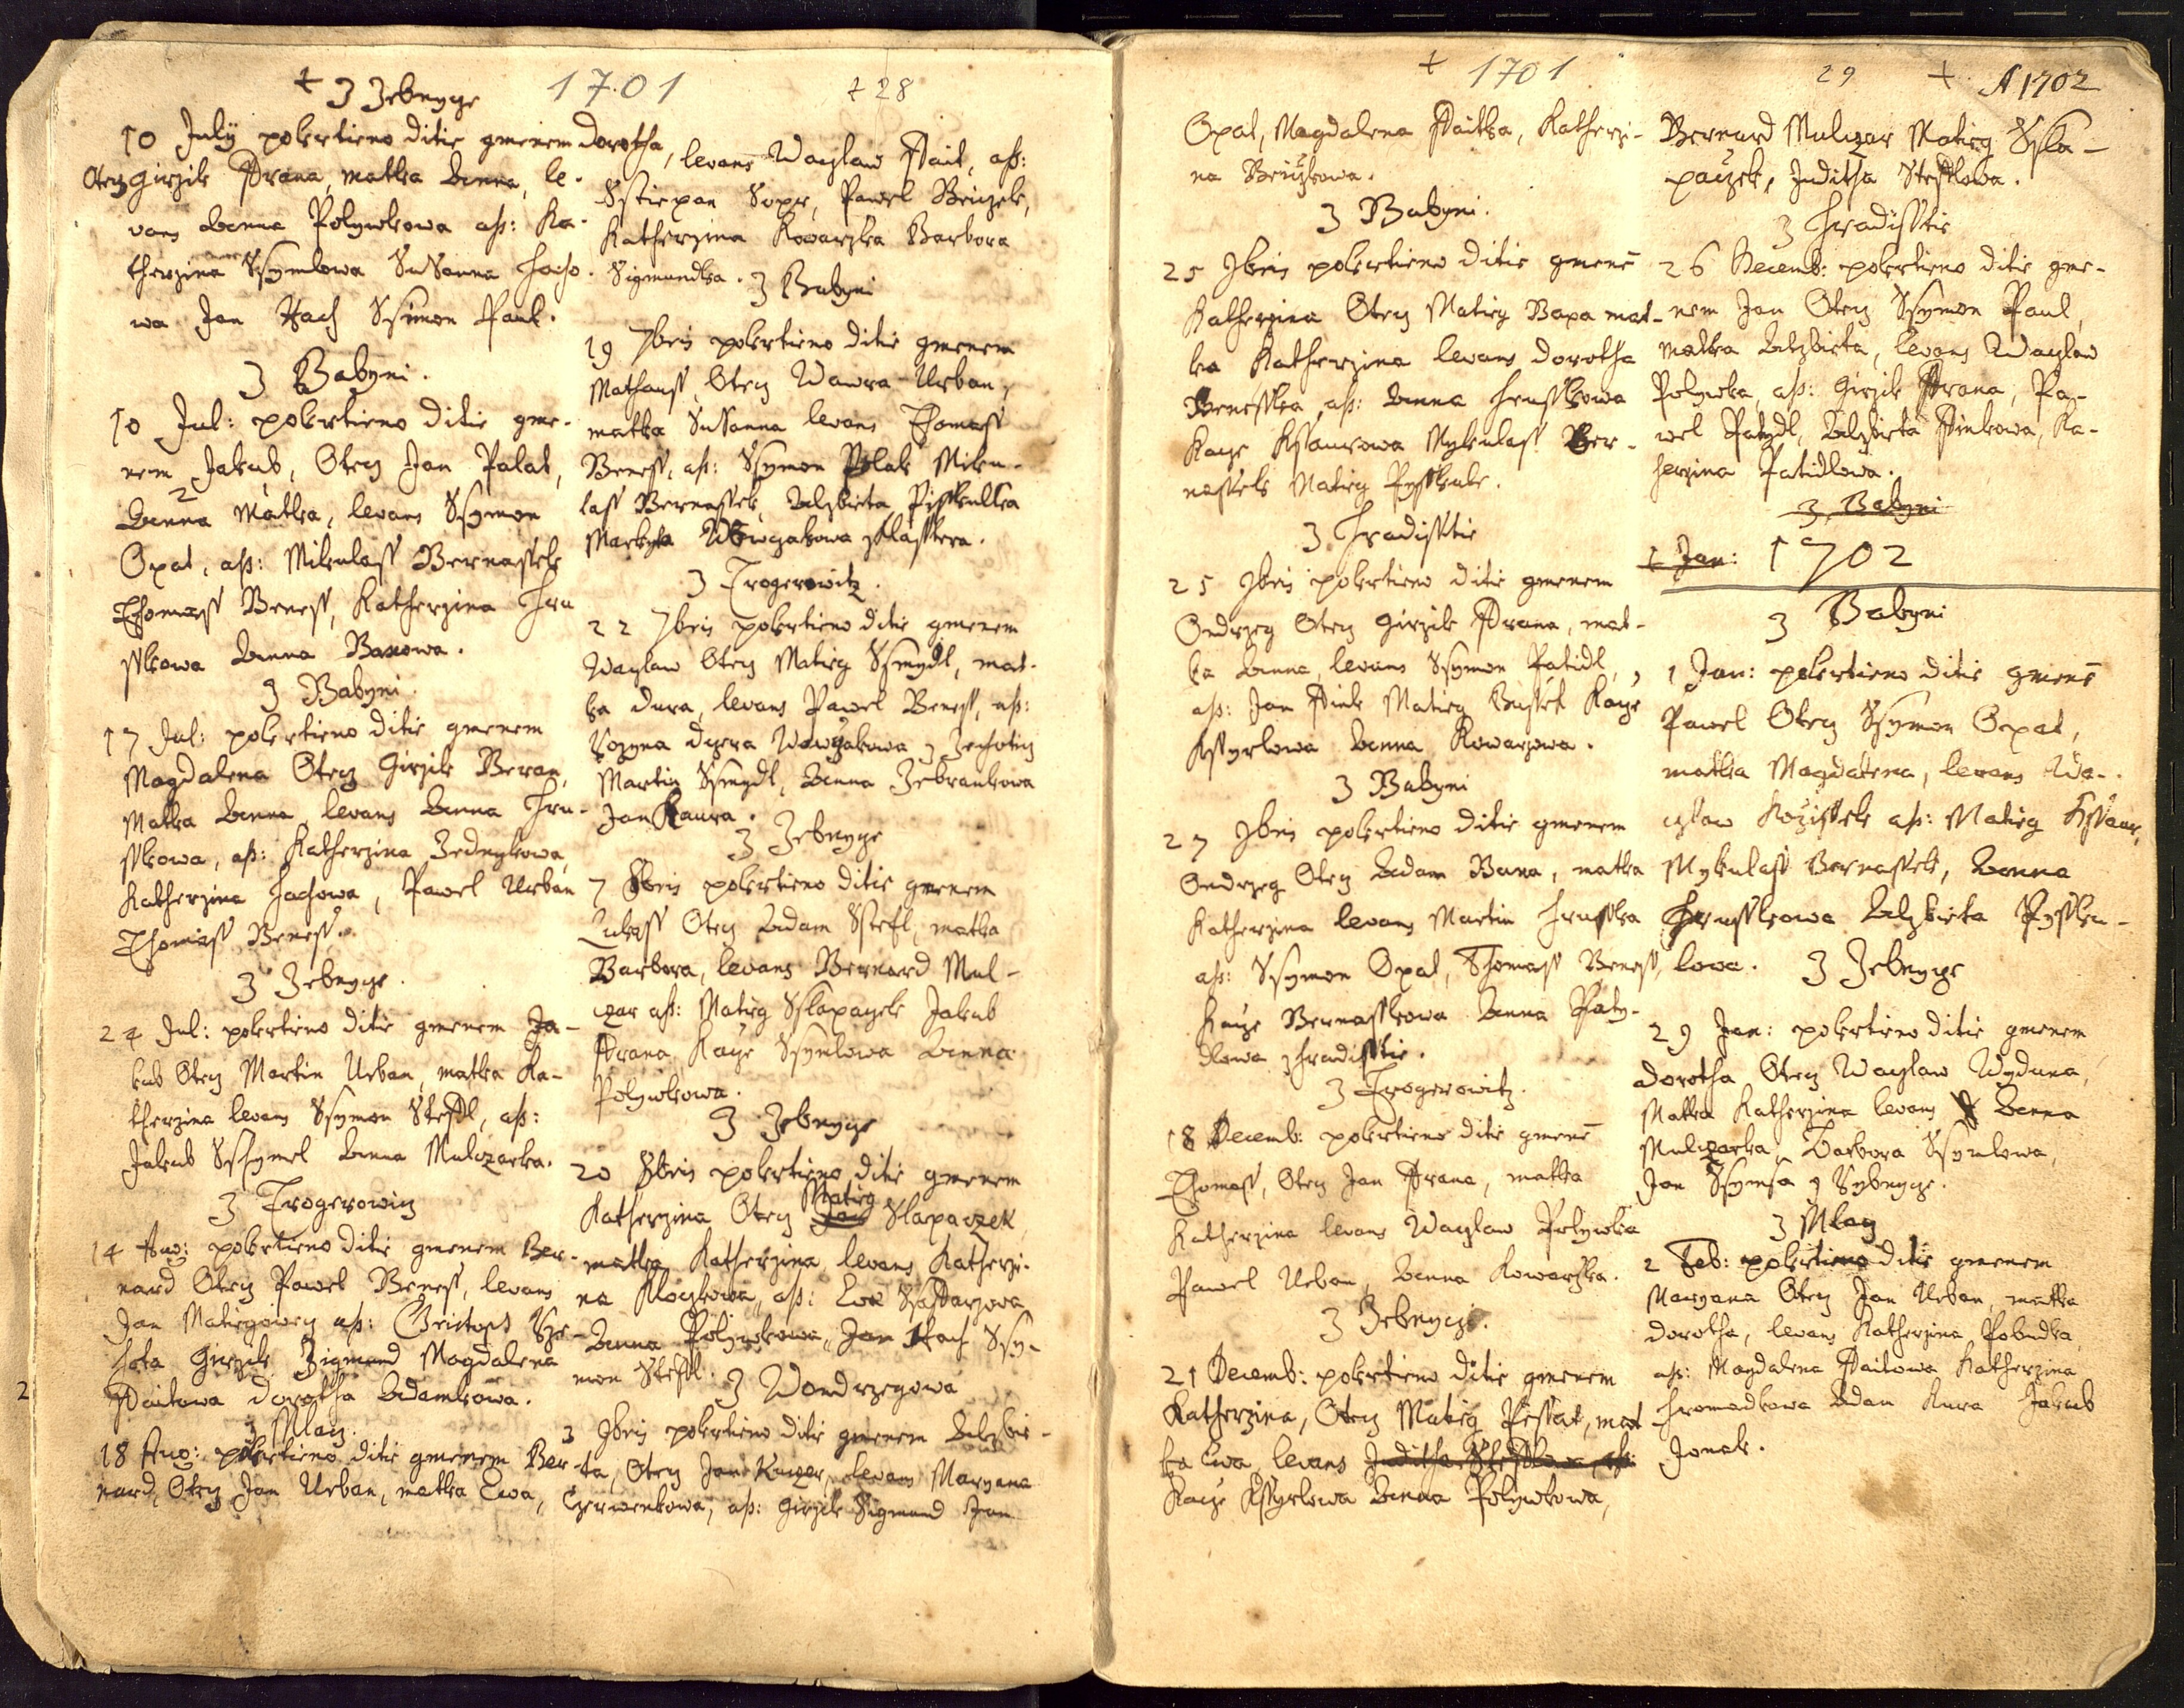 + Z Zebnyze 1701 + 28
10 July pokrtieno ditie gmenem
Otecz Girzik Frana, matka Anna, le-
vans Anna Polywkowa aß: Ka-
therzina Ssymlowa Susanna Hacho-
wa Jan Hach Ssimon Paul.
Z Babyni.
10 Jul: pokrtieno ditie gme-
nem Jakub, Otecz Jan Palat,
Anna Matka, levans Ssymon
Opat, aß: Mikulass Bernassek
Thomass Beness, Katherzina Hru
sskowa Anna Baxowa.
Z Babyni.
17 Jul: pokrtieno ditie gmenem
Magdalena Otecz Girzik Beran,
Matka Anna, levans Anna Hru-
sskowa, aß: Katherzina Zednykowa,
Katherzina Hachowa, Pawel Urban
Thomass Beness.
Z Zebnyze.
24 Jul: pokrtieno ditie gmenem Ja-
kub Otecz Martin Urban, matka Ka-
therzina levans Ssymon Steffl, aß:
Jakub Sshymel Anna Mulczarka.
Z Trogerowicz
14 Aug: pokrtieno ditie gmenem Ber-
nard Otecz Pawel Beness, levans
Jan Matiegowicz aß: Christoph
Girzik Zigmund Magdalena
Faitowa Dorotha Adamkowa.
Z Mlay.
18 Aug: pokrtieno ditie gmenem Ber-
nard, Otecz Jan Urban, matka Ewa,
Dorotha, levans Waczlaw Fait, aß:
Sstiepan Sopr, Pawel Beiczek,
Katherzina Kowarzka Barbora
Sigmundka. Z Babyni
19 7bris pokrtieno ditie gmenem
Mathauss, Otecz Wawra Urban,
matka Susanna levans Thomass
Beness, aß: Ssymon Polak Miku-
lass Bernassek, Alzbieta Pisskulka
Markyta z Klasstera.
Z Trogerowitz.
22 7bris pokrtieno ditie gmenem
Waczlaw Otecz Matieg Ssmydl, mat-
ka Dura, levans Pawel Beness, aß:
Rozyna dczera Z Zechoticz
Martin Ssmydl, Anna Zebrankowa
Jan Kaura.
Z Zebnyze
7 8bris pokrtieno ditie gmenem
Lukass Otecz Adam Sstefl, matka
Barbora, levans Bernard Mul-
czar aß: Matieg Sslapaczek Jakub
Frana Kacze Ssymlowa Anna
Polywkowa.
Z Zebnyze
20 8bris pokrtieno ditie gmenem
Katherzina Otecz Matieg Slapaczek
matka Katherzina, levans Katherzi-
na Kloczkowa, aß: Ewa Ssaffarzowa
Anna Polywkowa, Jan Hach Ssy-
mon Steffl. Z Wondrzegowa
3 9bris pokrtieno ditie gmenem Alzbie-
ta, Otecz Jan Kuczer, levans Maryana
Czerwenkowa, aß: Girzik Sigmund Jan
+ 1701
Opat, Magdalena Faitka, Katherzi-
na Beiczkowa.
Z Babyni.
25 9bris pokrtieno ditie gmenē
Katherzina Otecz Matieg Baxa mat-
ka Katherzina levans Dorotha
Benesska, aß: Anna Hrusskowa
Kacze Kssaurowa Mykulass Ber-
nassek Matieg Pysskule.
Z Hradisstie
25 9bris pokrtieno ditie gmenem
Ondrzeg Otecz Girzik Frana, mat-
ka Anna, levans Ssymon Patidl,
aß: Jan Fink Matieg Kacze
Kssyrlowa Anna Kowarzowa.
Z Babyni
27 9bris pokrtieno ditie gmenem
Ondrzeg Otecz Adam Buna, matka
Katherzina levans Martin Hrusska
aß: Ssymon Opat, Thomass Beness,
Kacze Bernasskowa Anna Paty-
dlowa z Hradisstie.
Z Trogerowitz.
18 Decemb: pokrtieno ditie gmenē
Thomass, Otecz Jan Frana, matka
Katherzina levans Waczlaw Polywka
Pawel Urban, Anna Kowarzka.
Z Zebnyze.
21 Decemb: pokrtieno ditie gmenem
Katherzina, Otecz Matieg Pessat, mat
ka Ewa, levans Juditha Stefflowa aß:
Kacze Kssyrlowa Anna Polywkowa,
29 + A 1702
Bernard Mulczar Matieg Ssla-
paczek, Juditha Stefflowa.
Z Hradisstie
26 Decemb: pokrtieno ditie gme-
nem Jan Otecz Ssymon Paul,
matka Alzbieta, levans Waczlaw
Polywka, aß: Girzik Frana, Pa-
wel Patydl, Alzbieta Finkowa, Ka-
therzina Patidlowa.
Z Babyni
1 Jan: 1702
Z Babyni
1 Jan: pokrtieno ditie gmenē
Pawel Otecz Ssymon Opat,
matka Magdalena, levans Wa-
czlaw Kozissek aß: Matieg Kssaur,
Mykulass Bernassek, Anna
Hrusskowa Alzbieta Pyssku-
lowa. Z Zebnyze
29 Jan: pokrtieno ditie gmenem
Dorotha Otecz Waczlaw Wyduna,
Matka Katherzina levans Anna
Mulczarka, Barbora Ssymlowa,
Jan Ssymsa z Rybnyze.
Z Mlay
2 Feb: pokrtieno ditie gmenem
Maryana Otecz Jan Urban, matka
Dorotha, levans Katherzina Pobudka,
aß: Magdalena Faitowa Katherzina
Hromadkowa Adam Kura Jakub
Jonak.